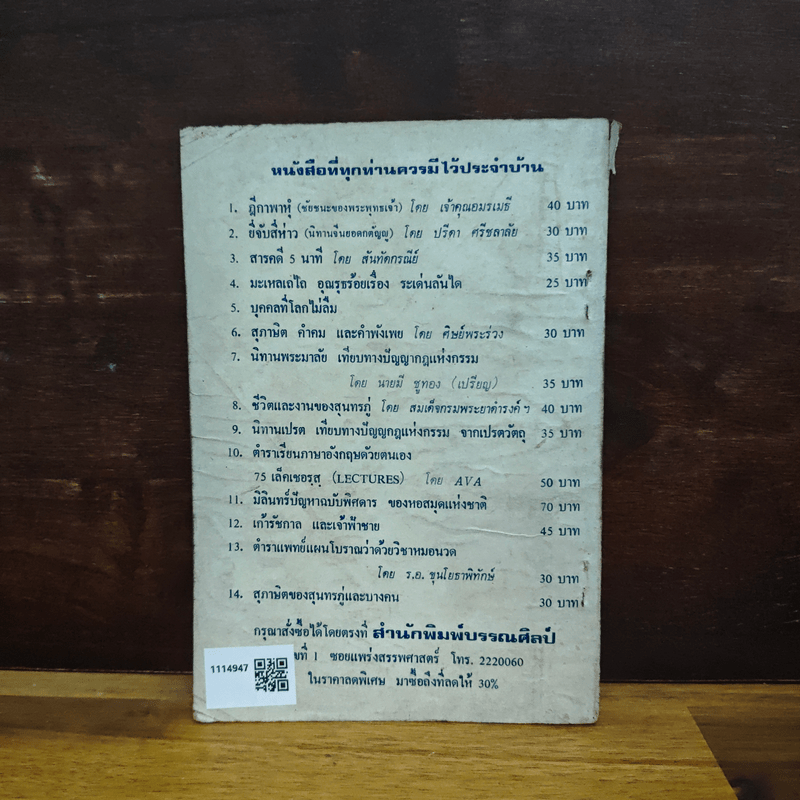 หนังสือที่ทุกท่านควรมีไว้ประจำบ้าน
1. ฎีกาพาหุํ (ชัยชนะของพระพุทธเจ้า) โดย เจ้าคุณอมรเมธี 40 บาท
2. ยี่จับสี่ห่าว (นิทานจีนยอดกตัญญู) โดย ปรีดา ศรีชลาลัย 30 บาท
3. สารคดี 5 นาที โดย สันทัดกรณีย์ 35 บาท
4. มะเหลเถไถ อุณรุธร้อยเรื่อง ระเด่นลันได 25 บาท
5. บุคคลที่โลกไม่ลืม
6. สุภาษิต คำคม และคำพังเพย โดย ศิษย์พระร่วง 30 บาท
7. นิทานพระมาลัย เทียบทางปัญญากฎแห่งกรรม
โดย นายมี ชูทอง (เปรียญ) 35 บาท
8. ชีวิตและงานของสุนทรภู่ โดย สมเด็จกรมพระยาดำรงค์ ฯ 40 บาท
9. นิทานเปรต เทียบทางปัญญกฎแห่งกรรม จากเปรตวัตถุ 35 บาท
10. ตำราเรียนภาษาอังกฤษด้วยตนเอง
75 เล็คเชอรฺสฺ (LECTURES) โดย AVA 50 บาท
11. มิลินทร์ปัญหาฉบับพิศดาร ของหอสมุดแห่งชาติ 70 บาท
12. เก้ารัชกาล และเจ้าฟ้าชาย 45 บาท
13. ตำราแพทย์แผนโบราณว่าด้วยวิชาหมอนวด
โดย ร.อ. ขุนโยธาพิทักษ์ 30 บาท
14. สุภาษิตของสุนทรภู่และบางคน 30 บาท
กรุณาสั่งซื้อได้โดยตรงที่ สำนักพิมพ์บรรณศิลป์
ที่ 1 ซอยแพร่งสรรพศาสตร์ โทร. 2220060
ในราคาลดพิเศษ มาซื้อถึงที่ลดให้ 30%
1114947